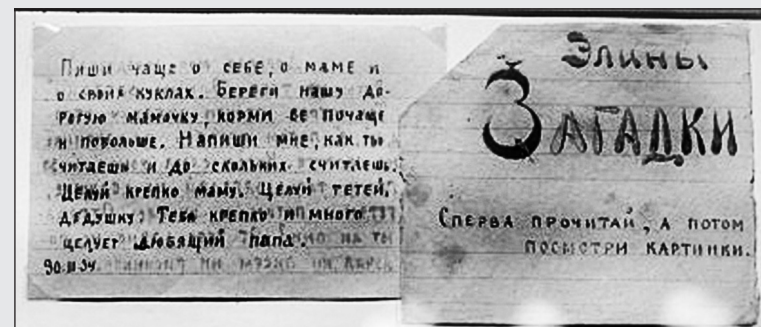 Пиши чаще о себе, о маме и
о своих куклах. Береги нашу до-
рогую мамочку, корми ее почаще
и побольше. Напиши мне, как ты
читаешь и до скольких считаешь.
Целуй крепко маму. Целуй тетей,
дедушку. Тебя крепко и много
целует любящий папа.
Элины
Загадки
Сперва прочитай, а потом
посмотри картинки.